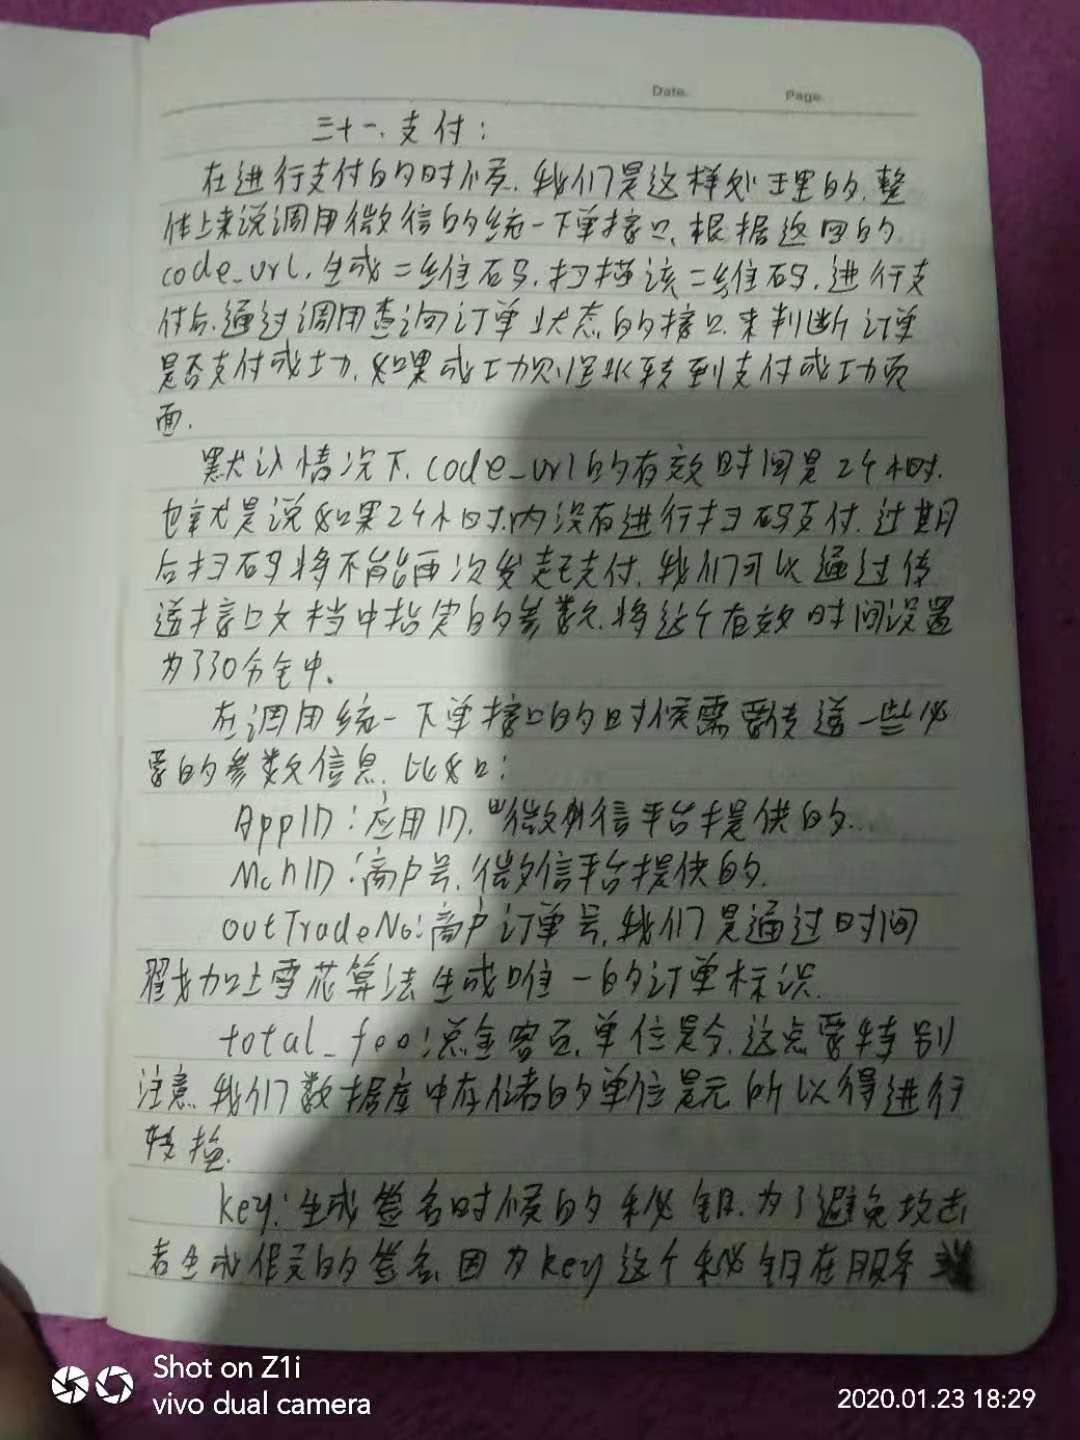 Date.
Page.
三十一、支付:
在进行支付的时候,我们是这样处理的,整
体上来说调用微信的统一下单接口,根据返回的
code_url,生成二维码,扫描该二维码,进行支
付后,通过调用查询订单状态的接口,来判断订单
是否支付成功,如果成功则跳转到支付成功页
面.
默认情况下,code_url的有效时间是24小时.
也就是说如果24小时内没有进行扫码支付,过期
后扫码将不能再次发起支付,我们可以通过传
送接口文档中指定的参数,将这个有效时间设置
为了30分钟.
在调用统一下单接口的时候需要传送一些必
要的参数信息,比如:
AppID:应用ID,微信平台提供的.
MchID:商户号,微信平台提供的.
outTradeNo:商户订单号,我们是通过时间
戳加上雪花算法生成唯一的订单标识.
total_fee:总金额,单位是分,这点要特别
注意,我们数据库中存储的单位是元所以得进行
转换.
key:生成签名时候的秘钥,为了避免攻击
者生成假冒的签名,因为key这个秘钥在服务
Shot on Z1i
vivo dual camera
2020.01.23 18:29